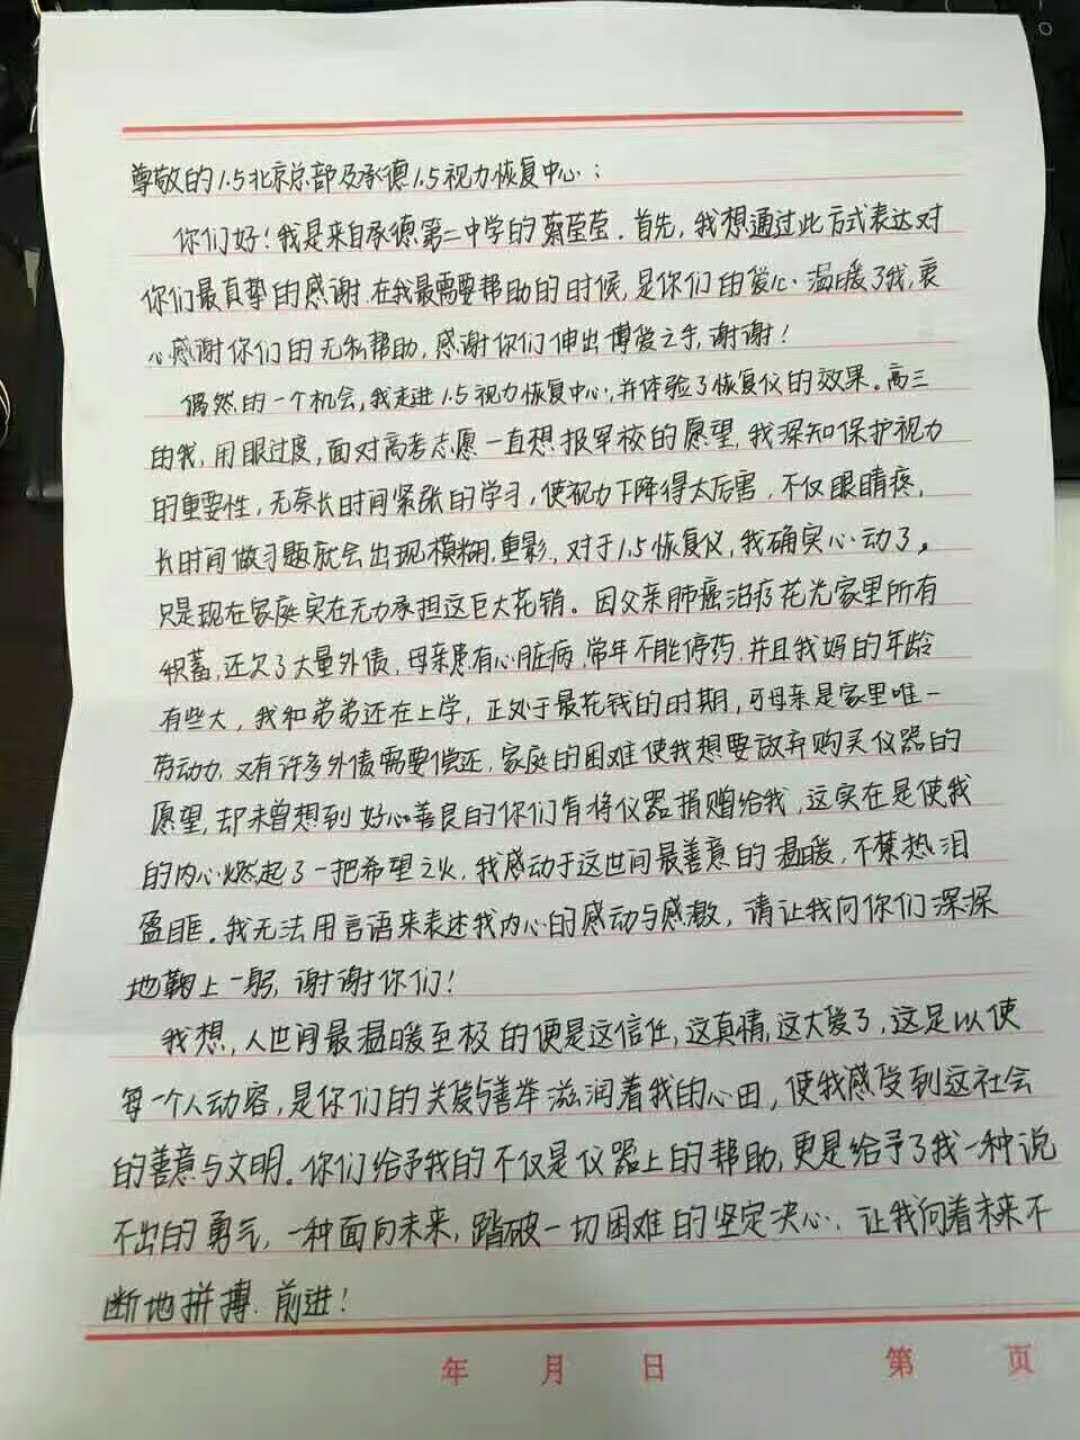 尊敬的1.5北京总部及承德1.5视力恢复中心：
你们好！我是来自承德第二中学的蔡莹莹．首先，我想通过此方式表达对
你们最真挚的感谢．在我最需要帮助的时候，是你们的爱心温暖了我，衷
心感谢你们的无私帮助，感谢你们伸出博爱之手，谢谢！
偶然的一个机会，我走进1.5视力恢复中心，并体验了恢复仪的效果。高三
的我，用眼过度，面对高考志愿一直想报军校的愿望，我深知保护视力
的重要性，无奈长时间紧张的学习，使视力下降得太厉害，不仅眼睛疼，
长时间做习题就会出现模糊，重影，对于1.5恢复仪，我确实心动了。
只是现在家庭实在无力承担这巨大花销。因父亲肺癌治疗花光家里所有
积蓄，还欠了大量外债，母亲患有心脏病，常年不能停药，并且我妈的年龄
有些大，我和弟弟还在上学，正处于最花钱的时期，可母亲是家里唯一
劳动力，又有许多外债需要偿还，家庭的困难使我想要放弃购买仪器的
愿望，却未曾想到好心善良的你们肯将仪器捐赠给我，这实在是使我
的内心燃起了一把希望之火，我感动于这世间最善意的温暖，不禁热泪
盈眶。我无法用言语来表述我内心的感动与感激，请让我向你们深深
地鞠上一躬，谢谢你们！
我想，人世间最温暖至极的便是这信任，这真情，这大爱了，这足以使
每一个人动容，是你们的关爱与善举滋润着我的心田，使我感受到这社会
的善意与文明。你们给予我的不仅是仪器上的帮助，更是给予了我一种说
不出的勇气，一种面向未来，踏破一切困难的坚定决心，让我向着未来不
断地拼搏．前进！
年 月 日 第 页